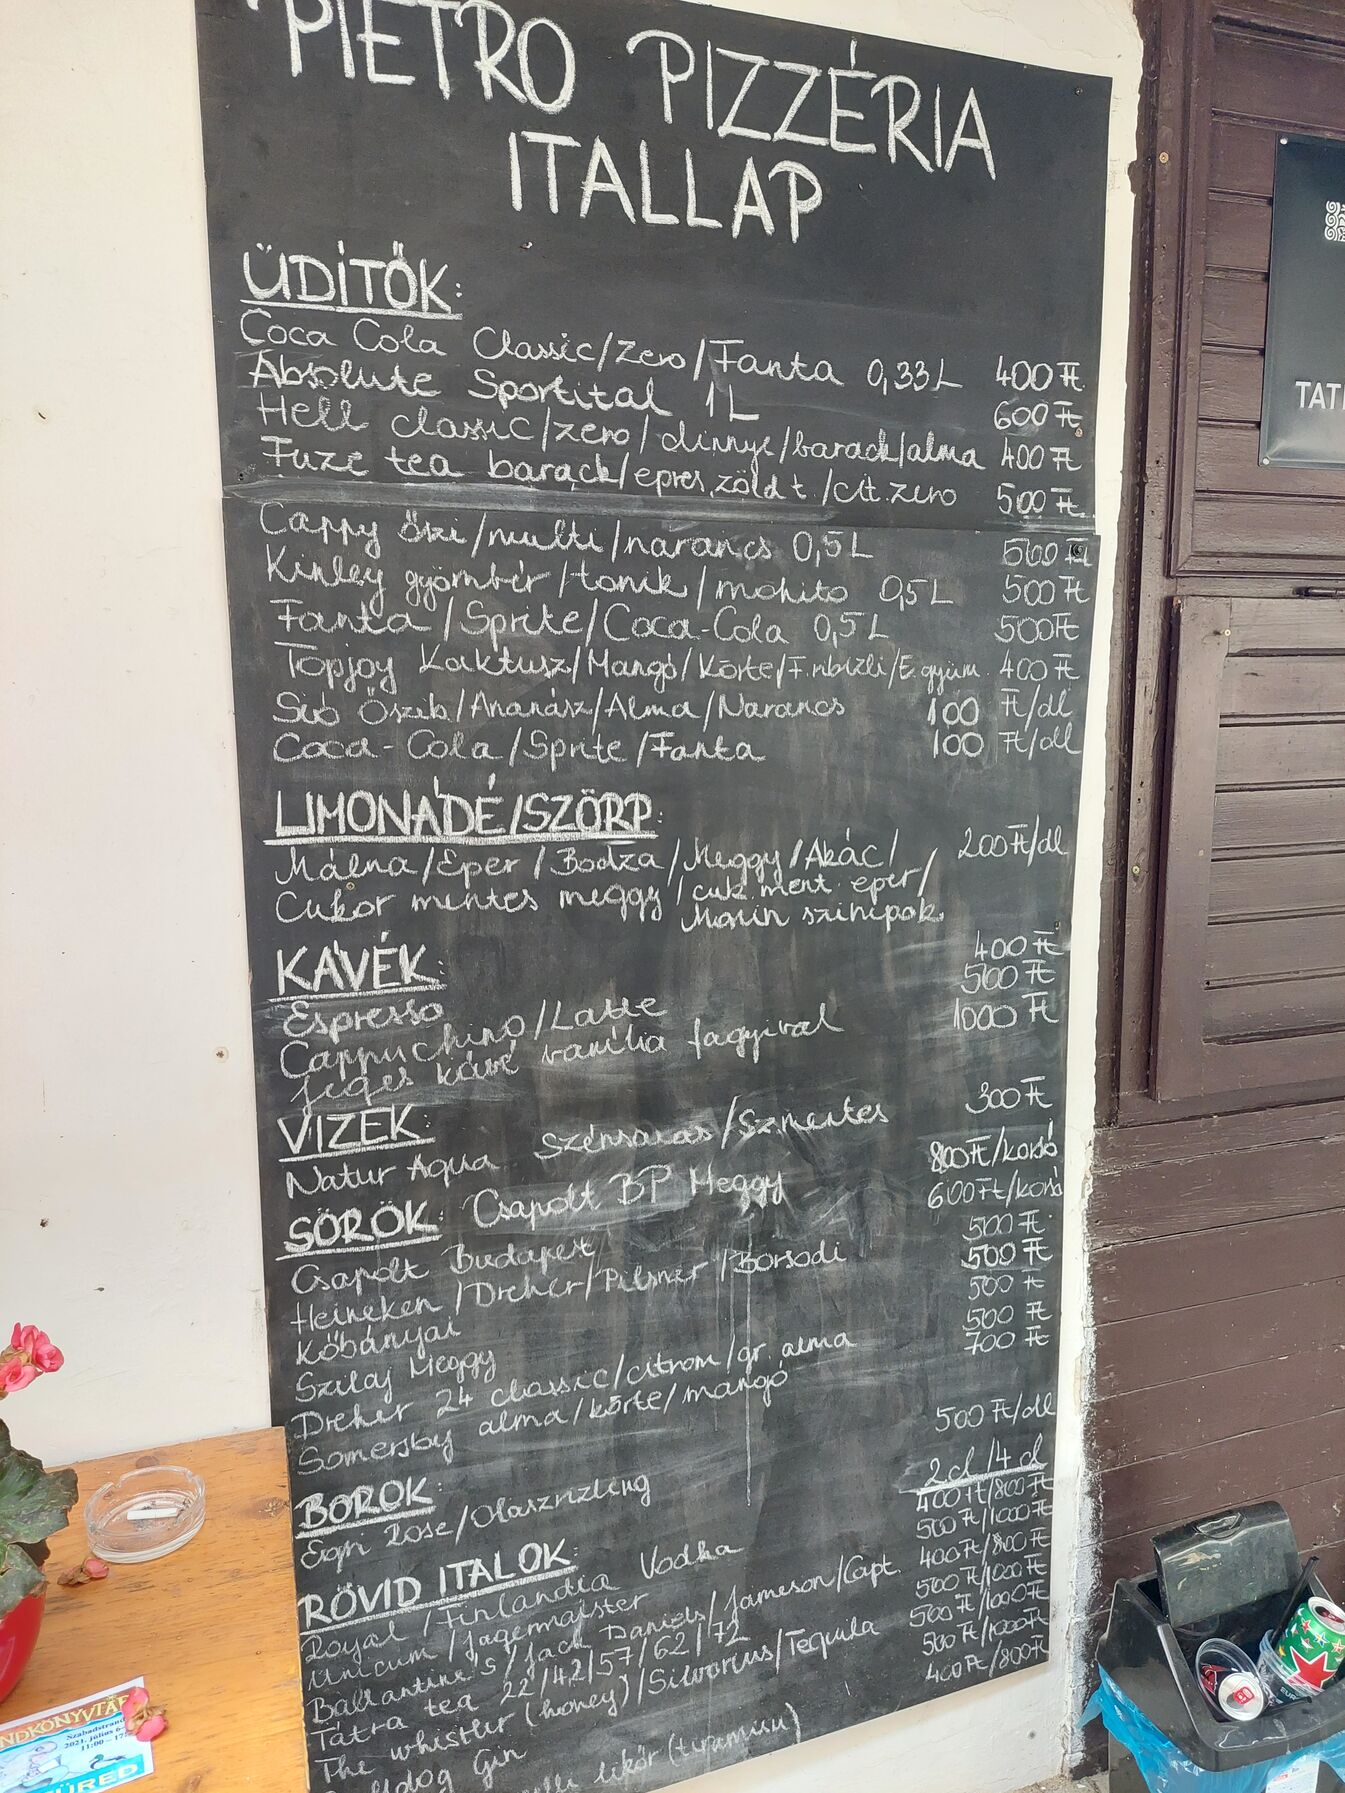 PIETRO PIZZÉRIA
ITALLAP
ÜDÍTŐK:
Coca Cola Classic/Zero/Fanta 0,33L 400 Ft
Absolute Sportital 1L 600 Ft
Hell classic/zero/dinnye/barack/alma 400 Ft
Fuze tea barack/epres zöld t./cit. zero 500 Ft
Cappy őszi/multi/narancs 0,5L 500 Ft
Kinley gyömbér/tonik/mohito 0,5L 500 Ft
Fanta/Sprite/Coca-Cola 0,5L 500Ft
Topjoy Kaktusz/Mangó/Körte/F.ribizli/E.gyüm. 400 Ft
Sió Őszib/Ananász/Alma/Narancs 100 Ft/dl
Coca-Cola/Sprite/Fanta 100 Ft/dl
LIMONÁDÉ/SZÖRP:
Málna/Eper/Bodza/Meggy/Akác/ 200Ft/dl
Cukor mentes meggy/cuk.ment. eper/
Monin szirupok
KÁVÉK:
Espresso 400 Ft
Cappuchino/Latte 500 Ft
jeges kávé vanília fagyival 1000 Ft
VIZEK:
Natur Aqua Szénsavas/Sz.mentes 300 Ft
SÖRÖK: Csapolt BP Meggy 800Ft/korsó
Csapolt Budapest 600Ft/korsó
Heineken/Dreher/Pilsner/Borsodi 500 Ft
Kőbányai 500 Ft
Szilaj Meggy 500 Ft
Dreher 24 classic/citrom/gr. alma 500 Ft
Somersby alma/körte/mangó 700 Ft
BOROK:
Egri Rose/Olaszrizling 500 Ft/dl
RÖVID ITALOK: 2 cl/4 cl
Royal/Finlandia Vodka 400Ft/800Ft
Unicum/Jagermaister 500 Ft/1000Ft
Ballantine's/Jack Daniels/Jameson/Capt. 400Ft/800 Ft
Tátra tea 22/42/57/62/72 500 Ft/1000 Ft
The whistler (honey)/Silvorius/Tequila 500 Ft/1000Ft
Gin 500 Ft/1000Ft
likőr (tiramisu) 400Ft/800Ft
TAT
NDKÖNYVTÁR
Szabadstrand
2021. július
11:00 – 17
ÜRED